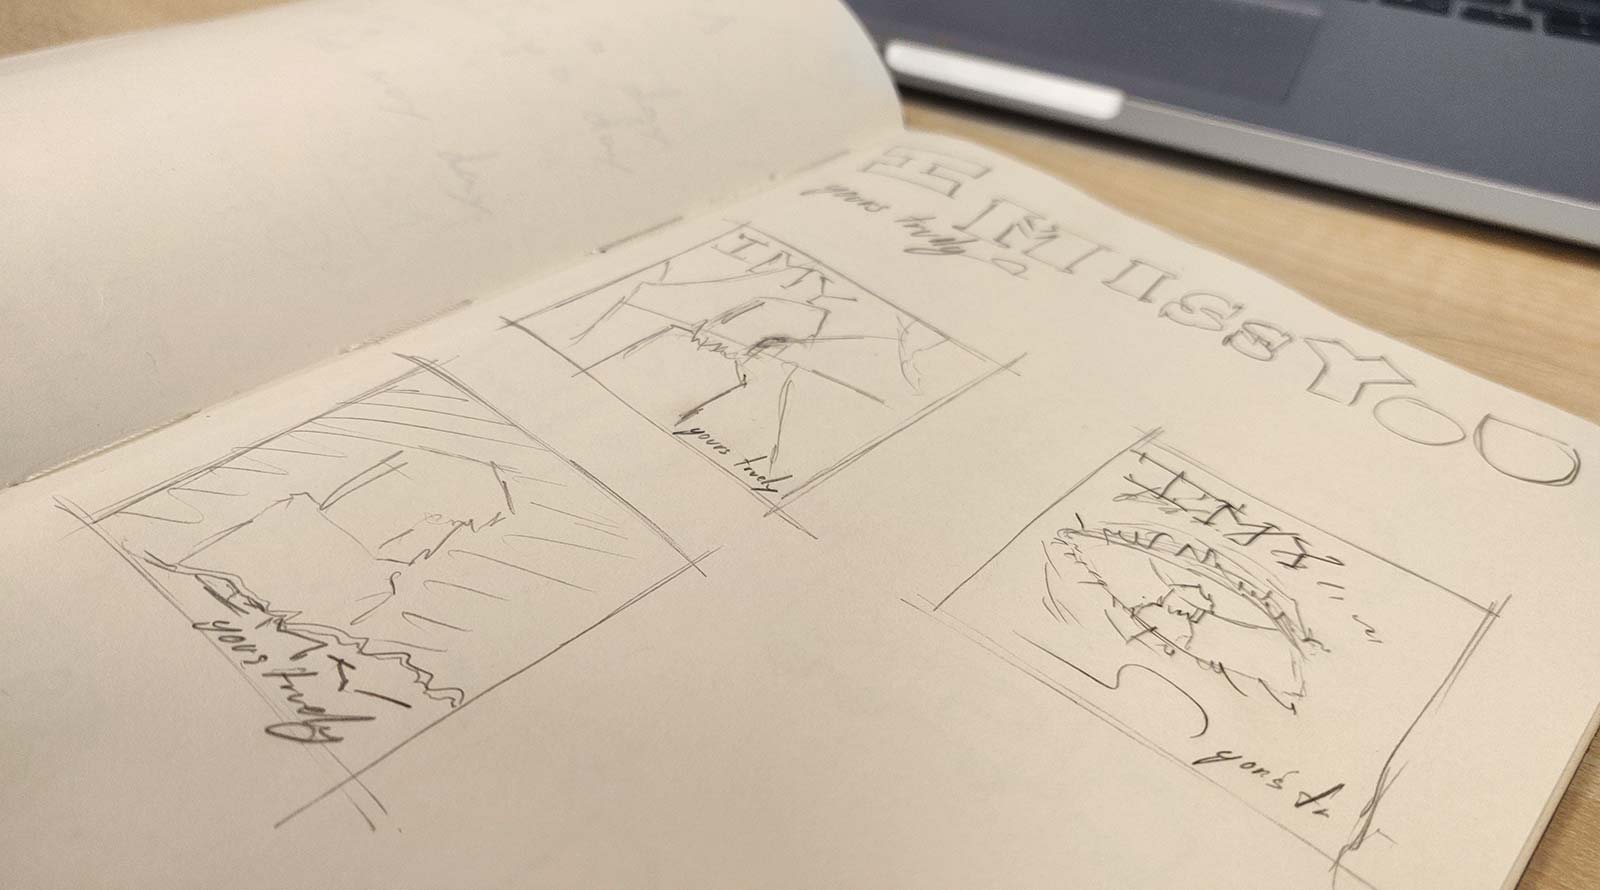 I MIssYOU
yours trully
IMY
yours truely
yours truely
IMY
yours tr